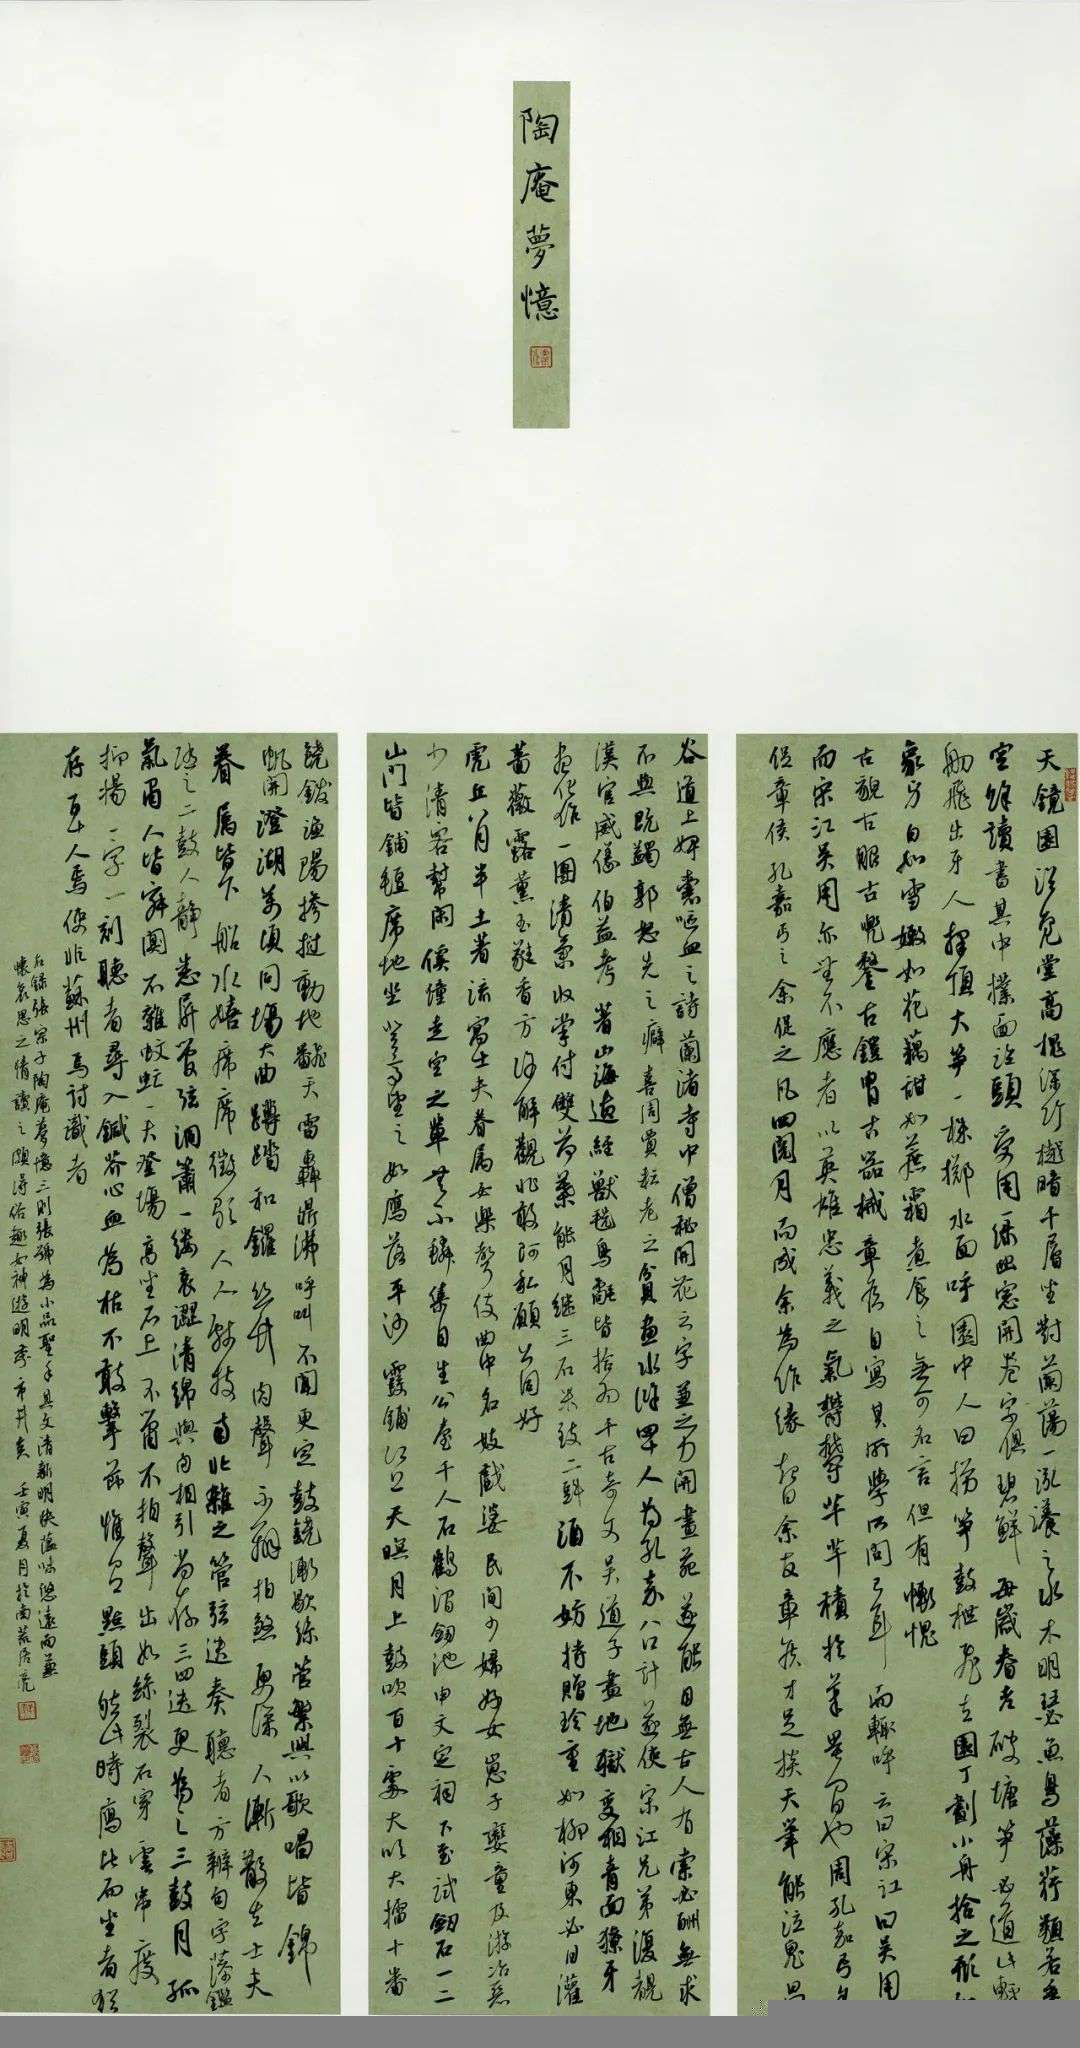 陶庵夢憶
天鏡園浴凫堂高槐深竹樾暗千層坐對蘭蕩一泓漾之水木明瑟魚鳥藻荇類若乘
空余讀書其中撲面臨頭受用一綠幽窗開卷字俱碧鮮每歲春老破塘筍必道此輕
舠飛出牙人擇頂大筍一株擲水面呼園中人曰撈筍鼓枻飛去園丁劃小舟拾之形如
象牙白如雪嫩如花藕甜如蔗霜煮食之無可名言但有慚愧
古貌古服古兜鍪古鎧冑古器械章侯自寫其所學所問已耳而輒呼之曰宋江曰吳用
而宋江吳用亦無不應者以英雄忠義之氣鬱鬱芊芊積於筆墨間也周孔嘉丐余
促章侯孔嘉丐之余促之凡四閱月而成余為作緣起曰余友章侯才足掞天筆能泣鬼昌
谷道上婢囊嘔血之詩蘭渚寺中僧秘開花之字兼之力開畫苑遂能目無古人有索必酬無求
不與既蠲郭恕先之癖喜周賈耘老之貧畫水滸四十人為孔嘉八口計遂使宋江兄弟復覩
漢官威儀伯益考著山海遺經獸毨鳥氄皆拾為千古奇文吳道子畫地獄變相青面獠牙
盡化作一團清氣收掌付雙荷葉能月繼三石米致二斗酒不妨持贈珍重如柳河東必日灌
薔薇露薰玉蕤香方許解觀非敢阿私願公同好
虎丘八月半土著流寓士夫眷屬女樂聲伎曲中名妓戲婆民間少婦好女崽子孌童及游冶惡
少清客幫閑傒僮走空之輩無不鱗集自生公臺千人石鶴澗劍池申文定祠下至試劍石一二
山門皆鋪氈席地坐登高望之如雁落平沙霞鋪江上天暝月上鼓吹百十處大吹大擂十番
鐃鈸漁陽摻撾動地翻天雷轟鼎沸呼叫不聞更定鼓鐃漸歇絲管繁興以歌唱皆錦
帆開澄湖萬頃同場大曲蹲踏和鑼絲竹肉聲不辨拍煞更深人漸散去士夫
眷屬皆下船水嬉席席徵歌人人獻技南北雜之管弦迭奏聽者方辨句字藻鑑
隨之二鼓人靜悉屏管弦洞簫一縷哀澀清綿與肉相引尚存三四迭更為之三鼓月孤
氣肅人皆寂闃不雜蚊虻一夫登場高坐石上不簫不拍聲出如絲裂石穿雲串度
抑揚一字一刻聽者尋入鍼芥心血為枯不敢擊節惟有點頭然此時雁比而坐者猶
存百十人焉使非蘇州焉討識者
右錄張宗子陶庵夢憶三則張號為小品聖手其文清新明快蘊味悠遠而兼
懷哀思之情讀之頗得俗趣如神游明季市井矣 壬寅夏月於南居亮